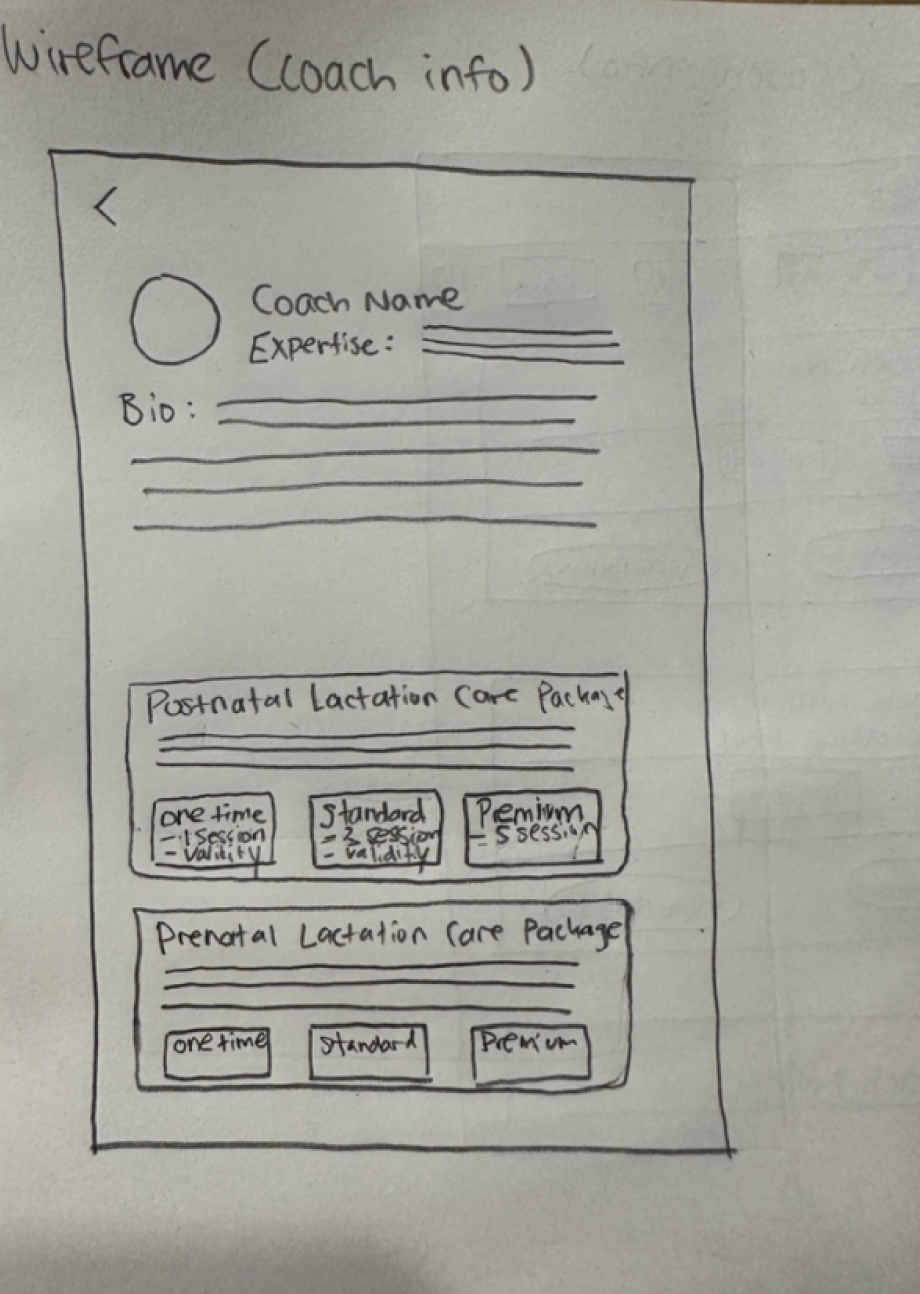 Wireframe (coach info)
<
Coach Name
Expertise:
Bio:
Postnatal Lactation Care Package
one time
- 1 session
- valitity
Standard
- 3 session
- validity
Premium
- 5 session
Prenatal Lactation Care Package
one time
Standard
Premium